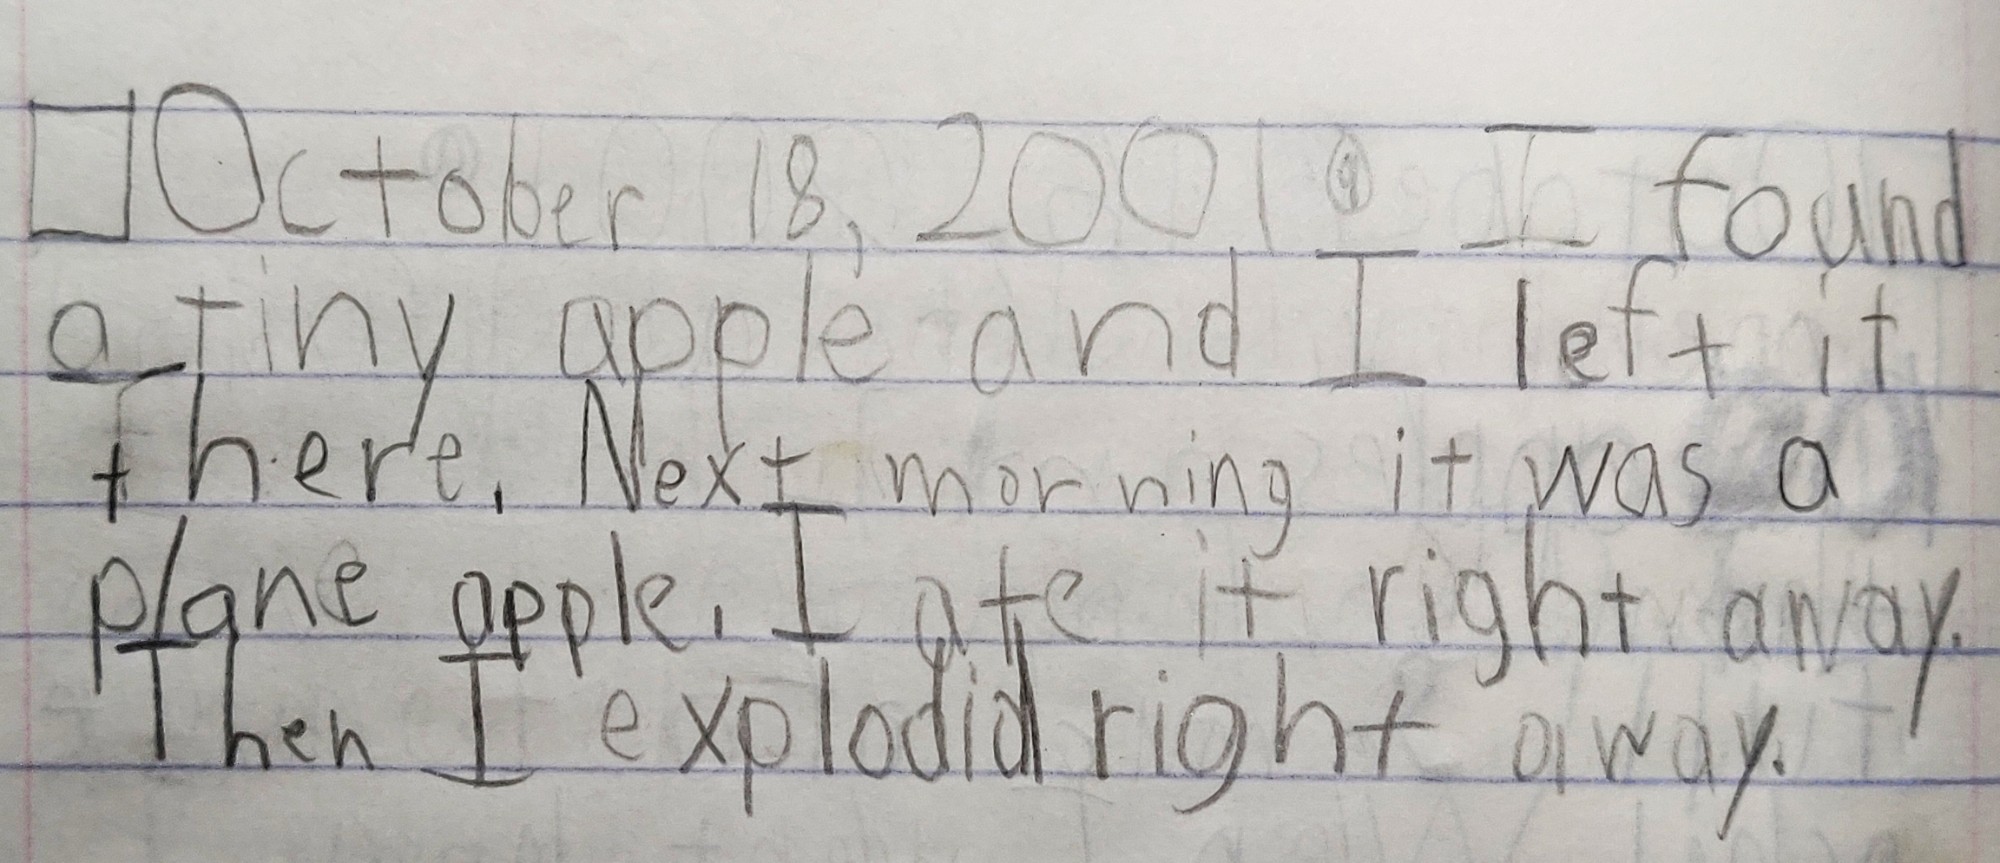 □October 18, 2001. I found
a tiny apple and I left it
there. Next morning it was a
plane apple. I ate it right away.
Then I explodid right away.